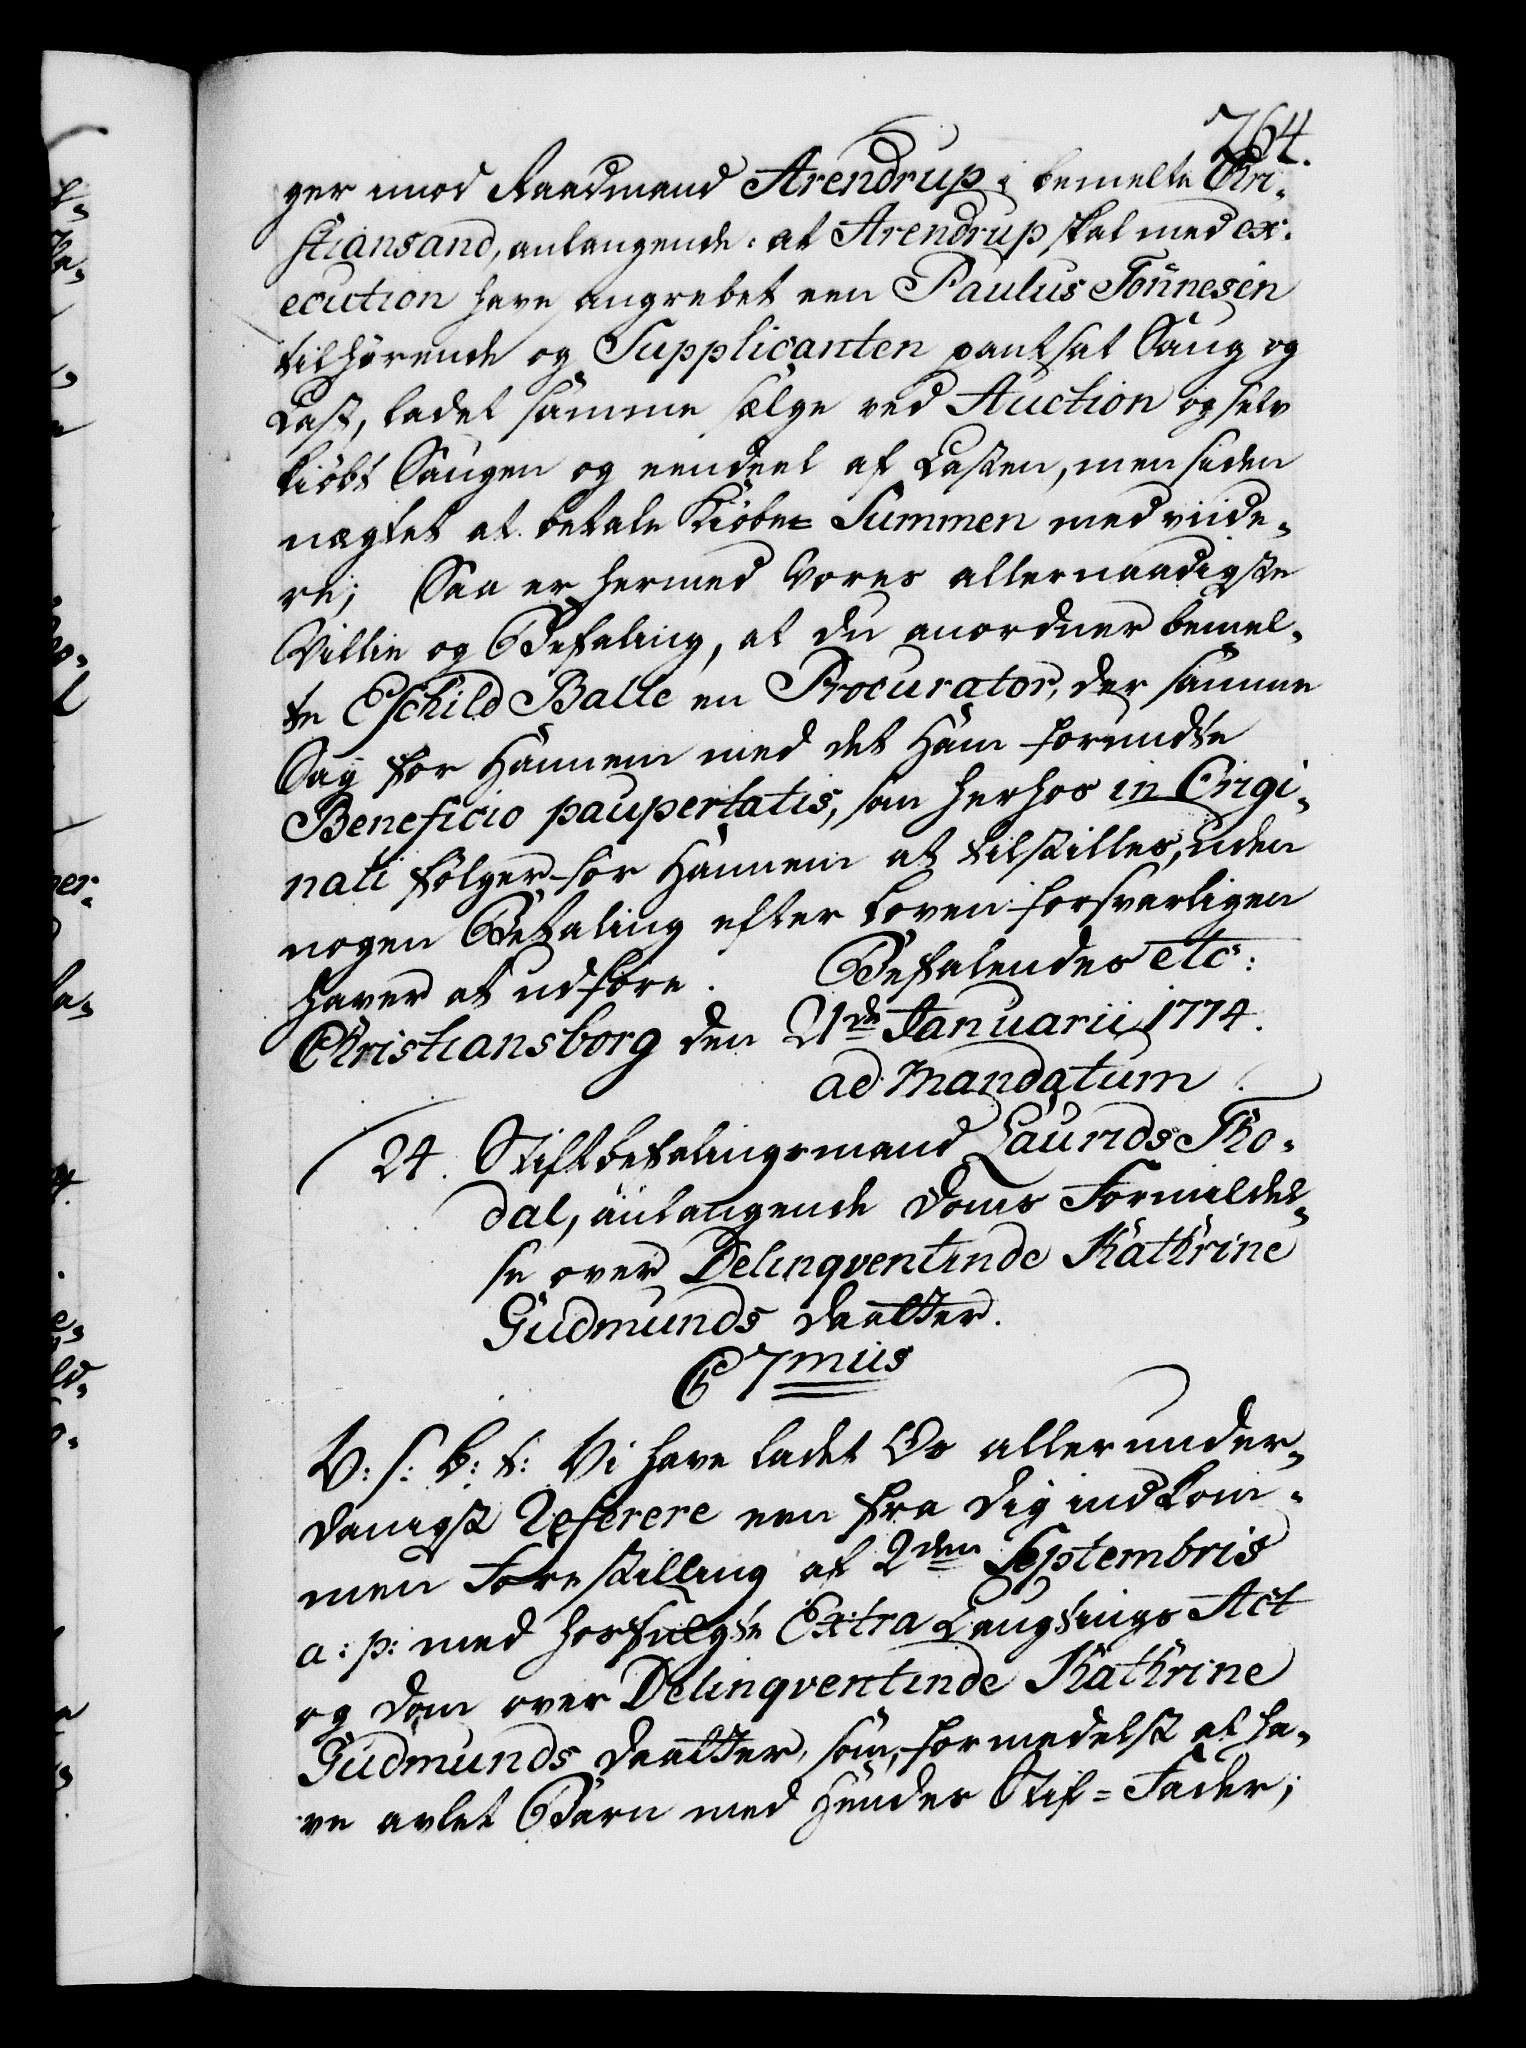 764.
ger imod Raadmand Arendrup i bemelte Chri-
stiansand, anlangende: at Arendrup skal med ex-
ecution have angrebet een Paulus Tönnesen
tilhørende og Supplicanten pantsat Saug og
Last, ladet samme sælge ved Auction og selv
kiöbt Saugen og eendeel af Lasten, men siden
nægtet at betale Kiöbe-Summen med viide-
re; Saa er hermed Vores allernaadigste
Villie og Befaling, at du anordner bemel-
te Eschild Balle en Procurator, der samme
Sag for Hannem med det Ham forundte
Beneficio paupertatis, som herhos in Origi-
nali fölger for Hannem at tilstilles, uden
nogen Betaling efter Loven forsvarligen
haver at udföre. Befalendes etc:
Christiansborg den 21de Januarii 1774.
ad Mandatum
24. Stiftbefalingsmand Laurids Tho-
dal, anlangende Doms Formildel-
se over Delinqventinde Kathrine
Gudmunds Daatter.
C 7mus
V: S: B: T: Vi have ladet Os allerunder-
danigst Referere een fra dig indkom-
men Forestilling af 2den Septembris
a: p: med hosfulgte Extra Laugtings Act
og Dom over Delinqventinde Kathrine
Gudmunds Daatter, som, formedelst at ha-
ve avlet Barn med Hendes Stif-Fader;